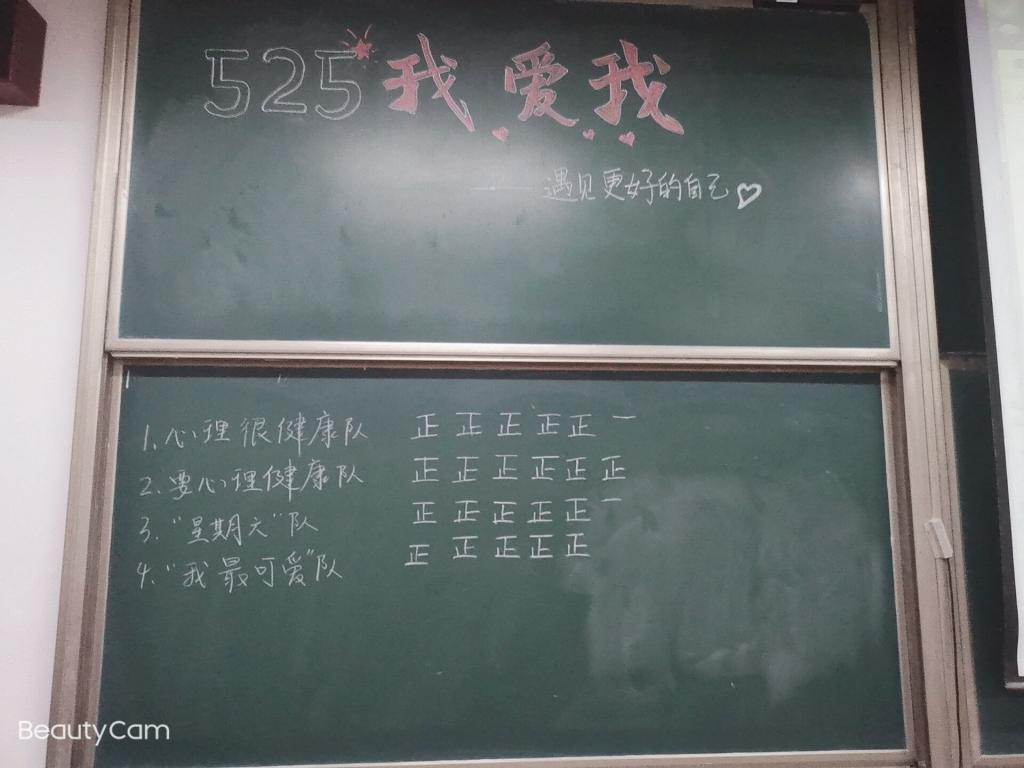 525 我爱我
——遇见更好的自己
1.心理很健康队 正正正正正一
2.要心理健康队 正正正正正正
3.“星期六”队 正正正正正一
4.“我最可爱”队 正正正正正
BeautyCam